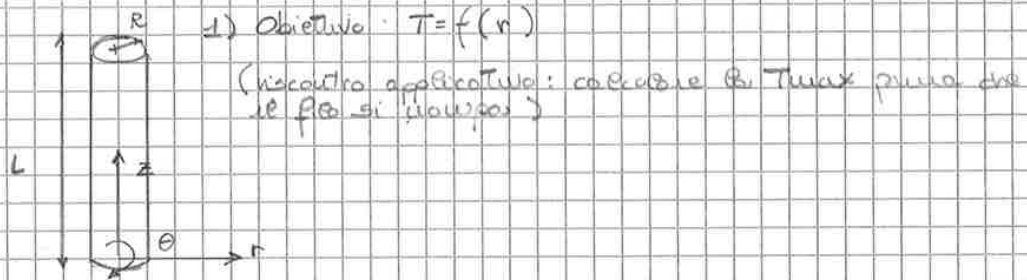 R
1) Obiettivo : T = f(r)
(riscontro applicativo: calcolare la Tmax prima che
il filo si rompa)
L
z
θ
r